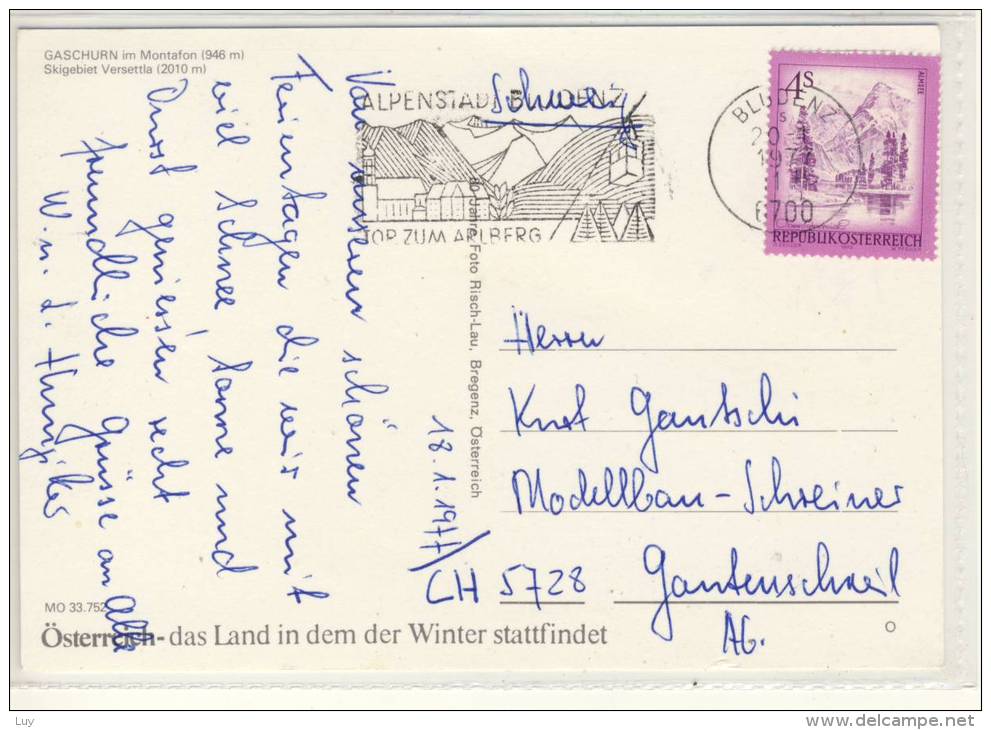 GASCHURN im Montafon (946 m)
Skigebiet Versettla (2010 m)
Von unseren schönen
Ferientagen die wir mit
viel Schnee Sonne und
geniessen recht
freundliche Grüsse an alle
W. u. L. Hunziker
18.1.1977
MO 33.752
Österreich - das Land in dem der Winter stattfindet
80 Jahre Foto Risch-Lau, Bregenz, Österreich
ALPENSTADT BLUDENZ
TOR ZUM ARLBERG
Schweiz
BLUDENZ
1977
6700
4S
ALMSEE
REPUBLIK ÖSTERREICH
Herrn
Kurt Gautschi
Modellbau-Schreiner
CH 5728 Gontenschwil
AG.
O
Luy
delcampe.net